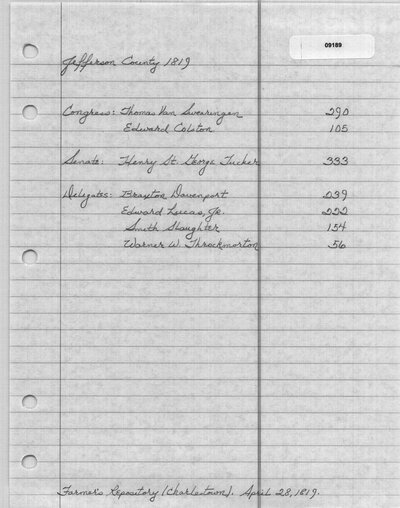 09189
Jefferson County 1819
Congress: Thomas Van Swearingen 290
Edward Colston 105
Senate: Henry St. George Tucker 333
Delegates: Braxton Davenport 239
Edward Lucas, Jr. 222
Smith Slaughter 154
Warner W. Throckmorton 56
Farmer's Repository (Charlestown). April 28, 1819.